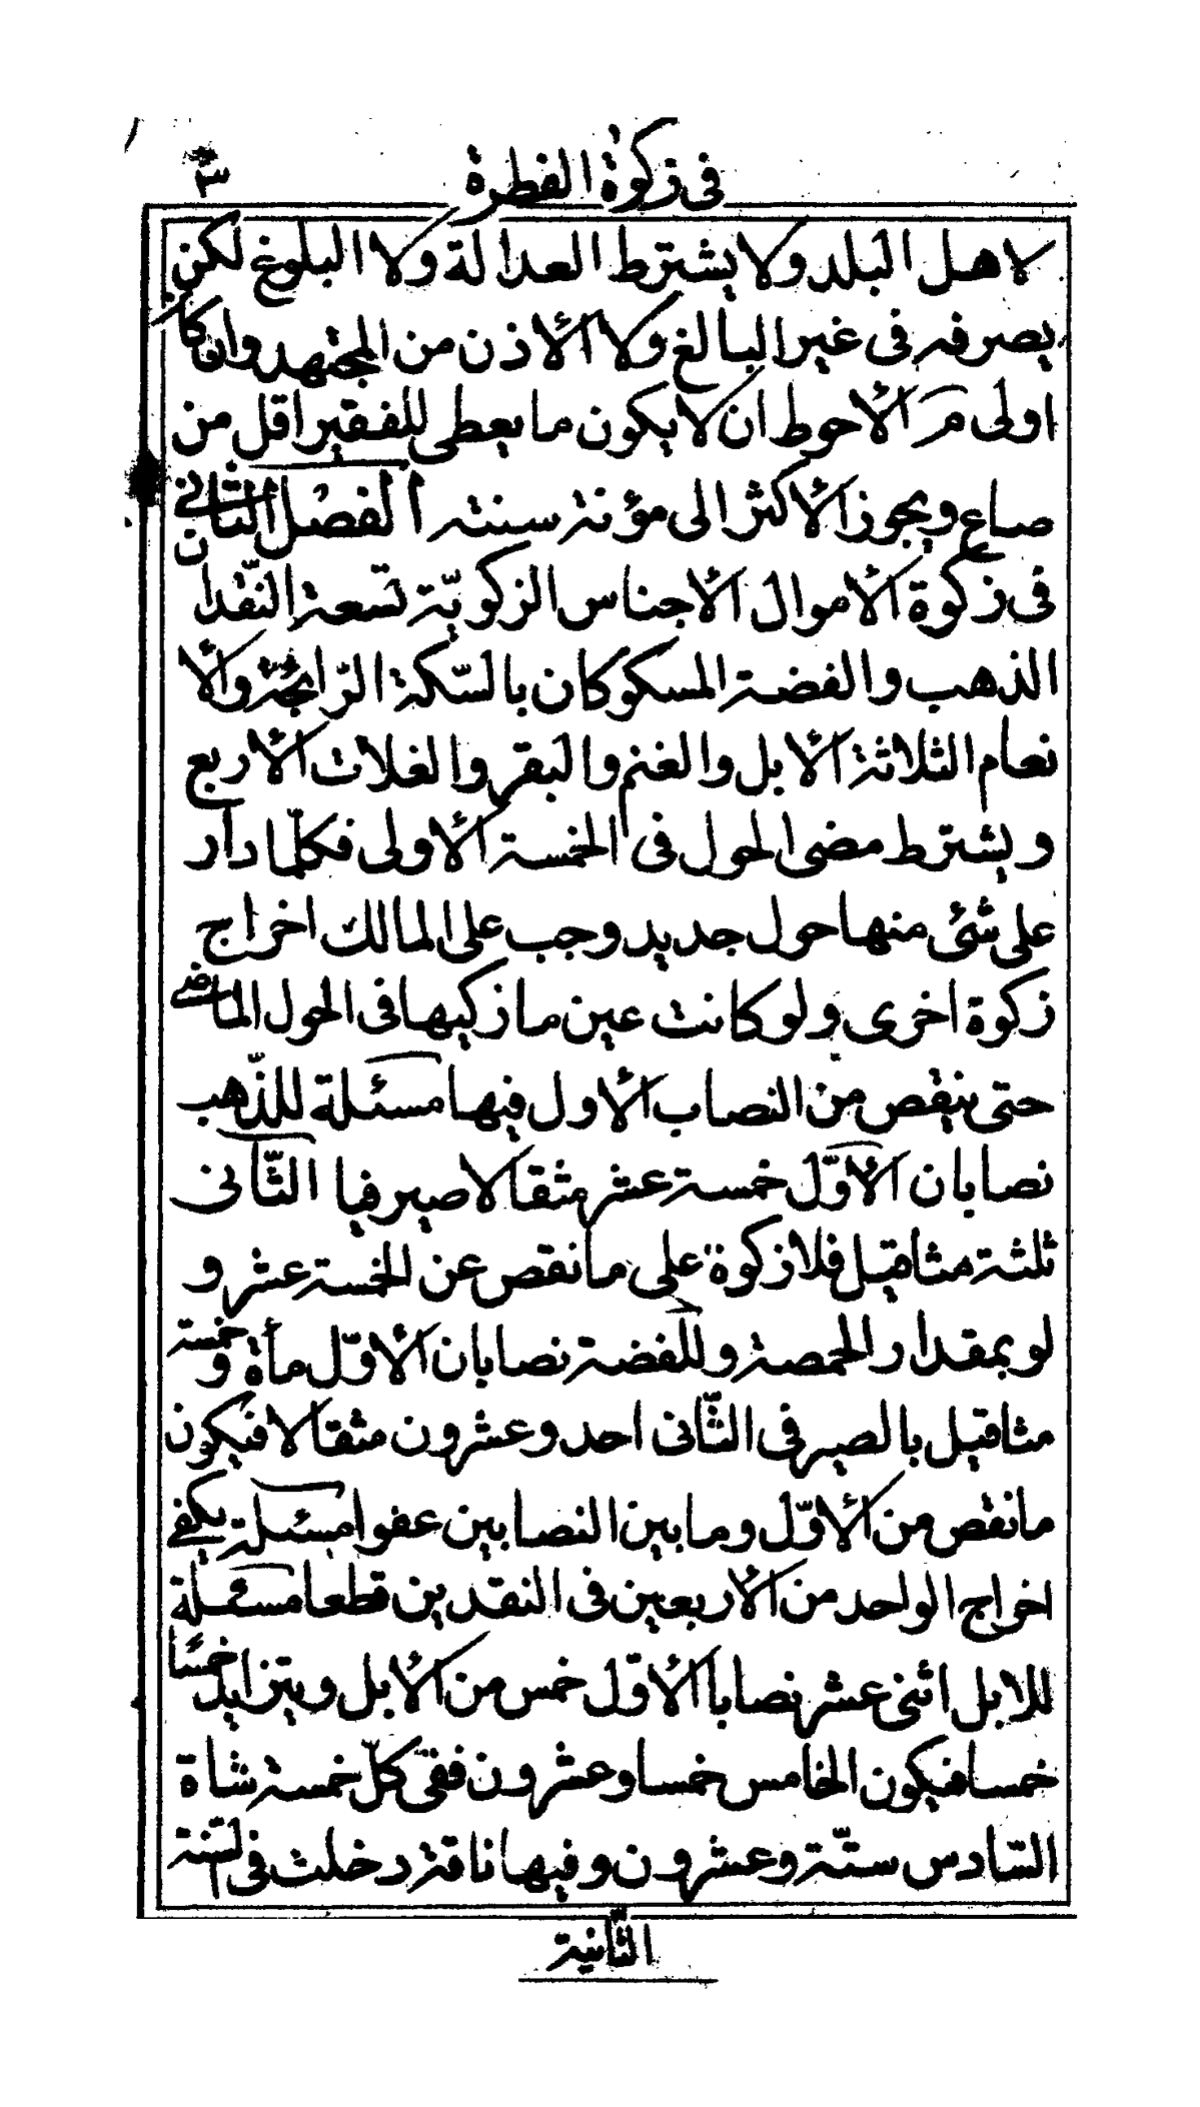 في زكوة الفطرة
٣
لاهل البلد ولا يشترط العدالة ولا البلوغ لكن
يصرفه في غير البالغ ولا الأذن من المجتهد وان كان
اولى م الأحوط ان لا يكون ما يعطى للفقير اقل من
صاع ويجوز الأكثر الى مؤنة سنته الفصل الثاني
في زكوة الأموال الأجناس الزكويّة تسعة النّقدان
الذهب والفضة المسكوكان بالسّكة الرّايجة والأ
نعام الثلاثة الأبل والغنم والبقر والغلات الأربع
ويشترط مضى الحول في الخمسة الأولى فكلّما دار
على شئ منها حول جديد وجب على المالك اخراج
زكوة اخرى ولو كانت عين ما زكيها في الحول الماضي
حتى ينقص من النصاب الأول فيها مسئلة للذّهب
نصابان الأوّل خمسة عشر مثقالا صيرفيا الثّانى
ثلثة مثاقيل فلا زكوة على ما نقص عن الخمسة عشر و
لو بمقدار الحمصة وللفضة نصابان الأوّل مأة و خمسة
مثاقيل بالصيرفى الثّانى احد وعشرون مثقالا فيكون
ما نقص من الأوّل وما بين النصابين عفوا مسئلة يكفي
اخراج الواحد من الأربعين في النقدين قطعا مسئلة
للابل اثنى عشر نصابا الأوّل خمس من الأبل ويتزايد خمسا
خمسا فيكون الخامس خمسا وعشرون ففى كلّ خمسة شاة
السّادس ستّة وعشرون وفيها ناقة دخلت في السّنة
الثّانية